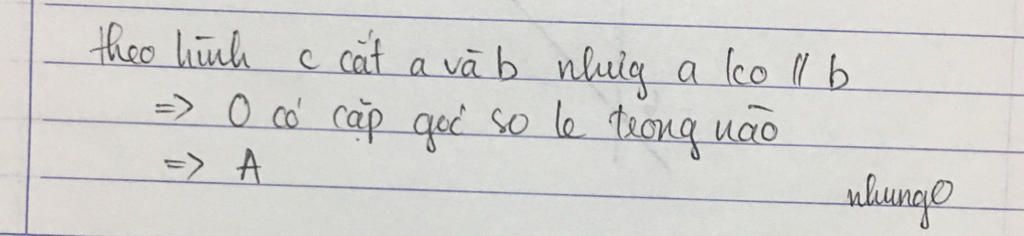 theo hình c cắt a và b nhưg a ko // b
=> 0 có cặp góc so le trong nào
=> A
nhung0